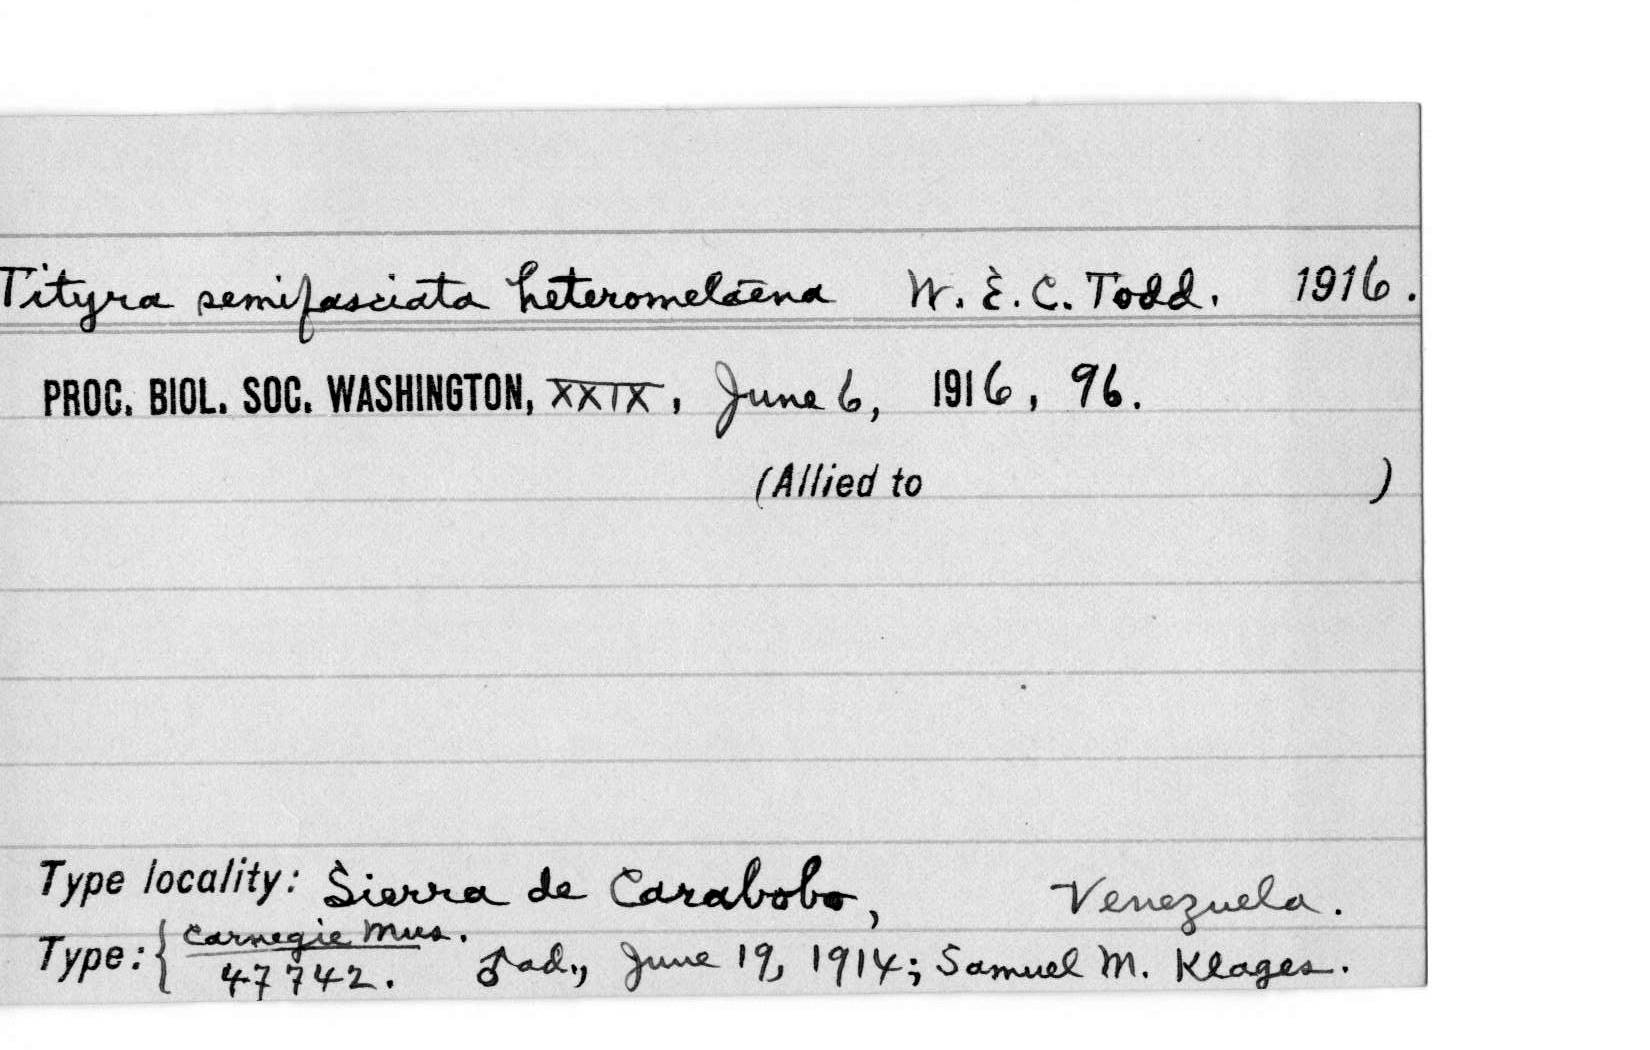 Tityra semifasciata heteromelaena W. E. C. Todd. 1916.
PROC. BIOL. SOC. WASHINGTON, XXIX, June 6, 1916, 96.
(Allied to )
Type locality: Sierra de Carabobo, Venezuela.
Carnegie Mus.
Type: { 47742. ♂ ad., June 19, 1914; Samuel M. Klages.